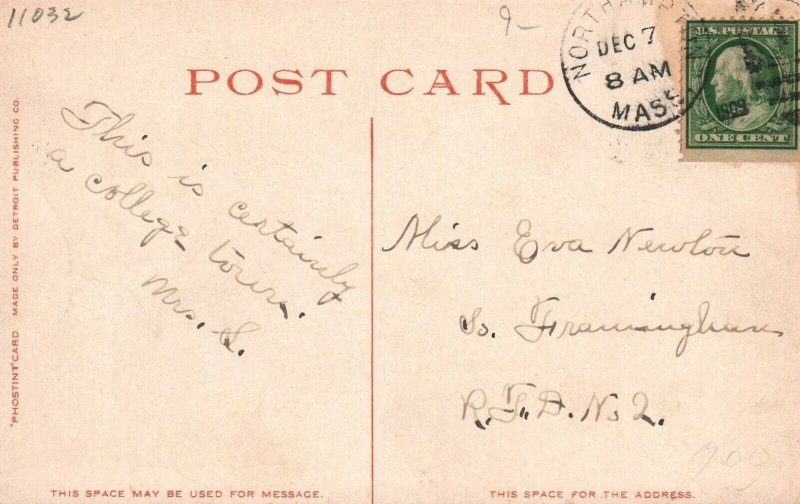 11032
9-
NORTHAMPTON
DEC 7
8 AM
MASS.
U.S. POSTAGE
ONE CENT
POST CARD
"PHOSTINT" CARD MADE ONLY BY DETROIT PUBLISHING CO.
This is certainly
a college town.
Mrs. S.
Miss Eva Newton
So. Framingham
R.F.D. No 2.
THIS SPACE MAY BE USED FOR MESSAGE.
THIS SPACE FOR THE ADDRESS.